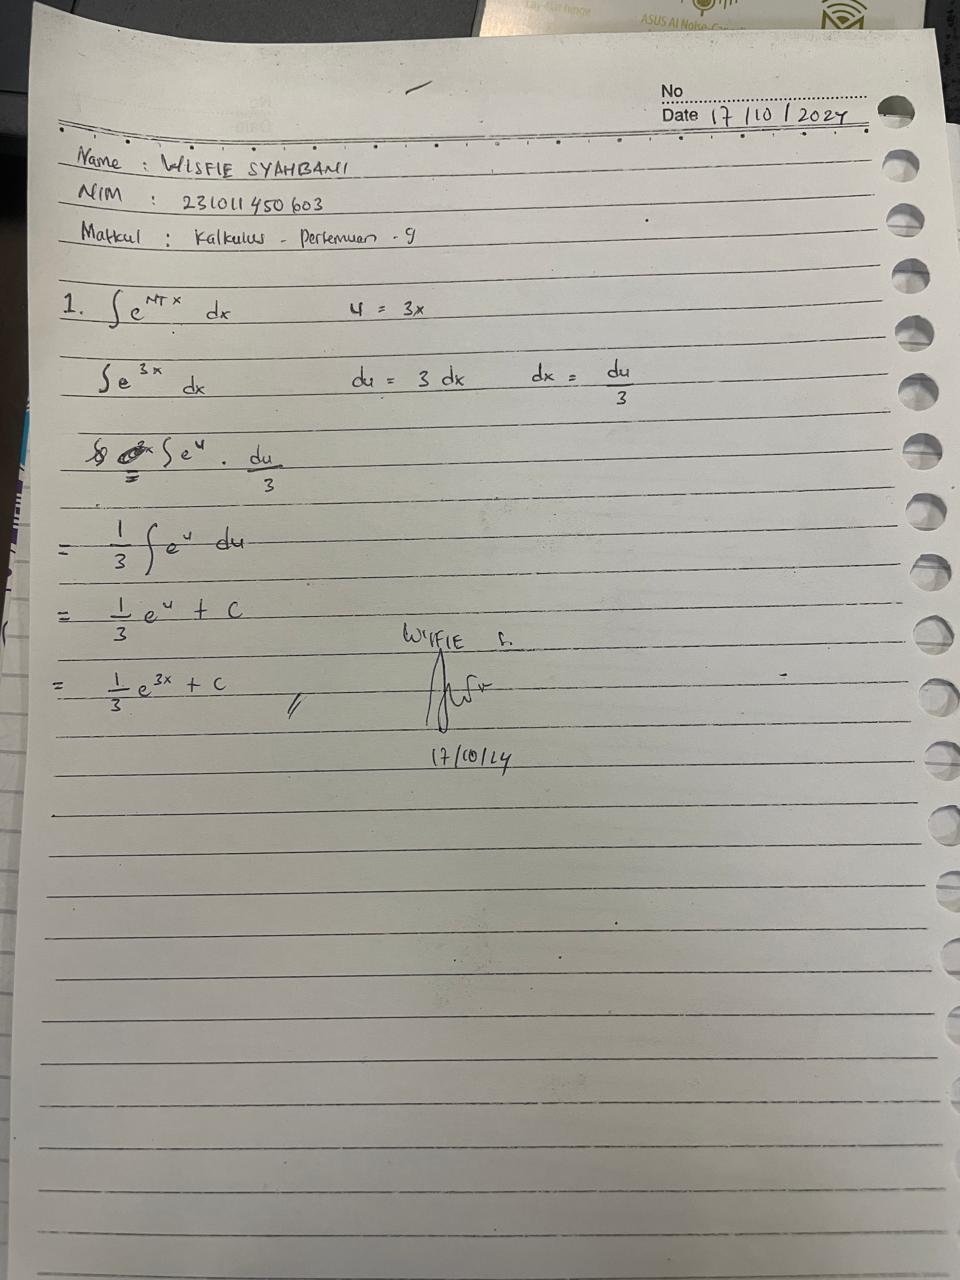 Lay-flat hinge
ASUS AI Noise-Can
No
Date 17/10/2024
Name : WISFIE SYAHBANI
NIM : 231011450603
Matkul : Kalkulus - Pertemuan - 9
1. ∫ e^NT x dx u = 3x
∫ e^3x dx du = 3 dx dx = du/3
∫ e^u . du/3
= 1/3 ∫ e^u du
= 1/3 e^u + C
WISFIE S.
= 1/3 e^3x + C //
17/10/24